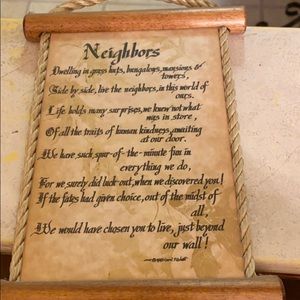 Neighbors
Dwelling in grass huts, bungalows, mansions &
towers,
Side by side, live the neighbors, in this world of
ours.
Life holds many surprises, we knew not what
was in store,
Of all the traits of human kindness, awaiting
at our door.
We have such, spur-of-the-minute fun in
everything we do,
For we surely did luck-out, when we discovered you!
If the fates had given choice, out of the midst of
all,
We would have chosen you to live, just beyond
our wall!